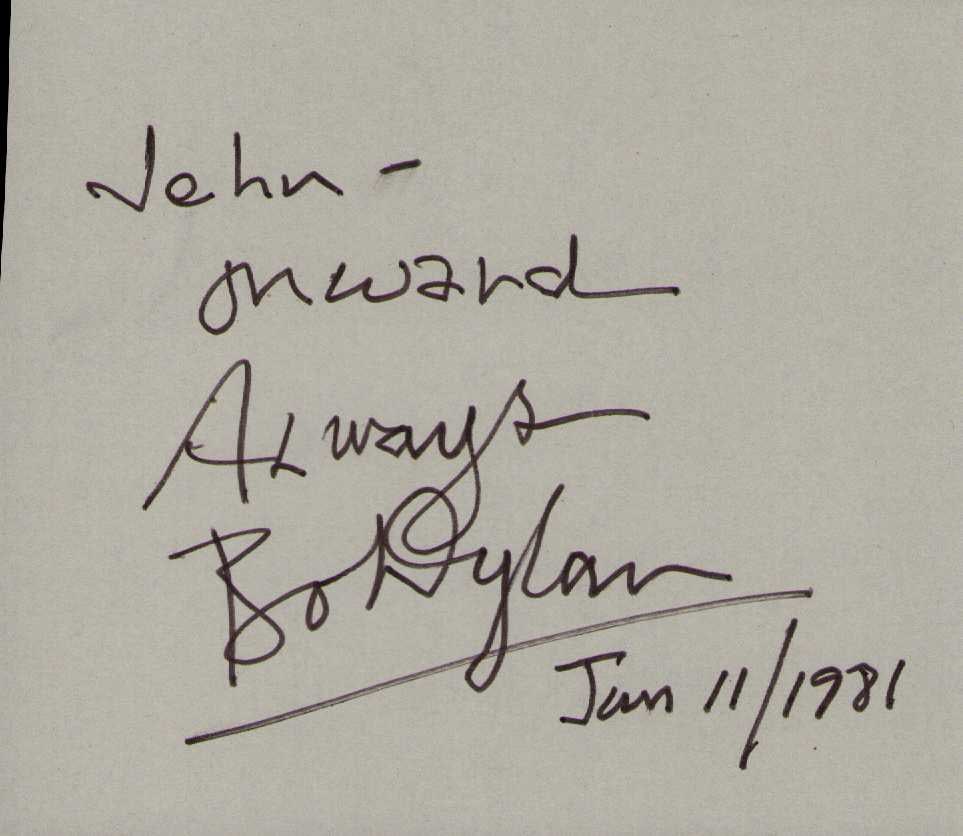 John -
onward
Always
Bob Dylan
Jan 11/1981